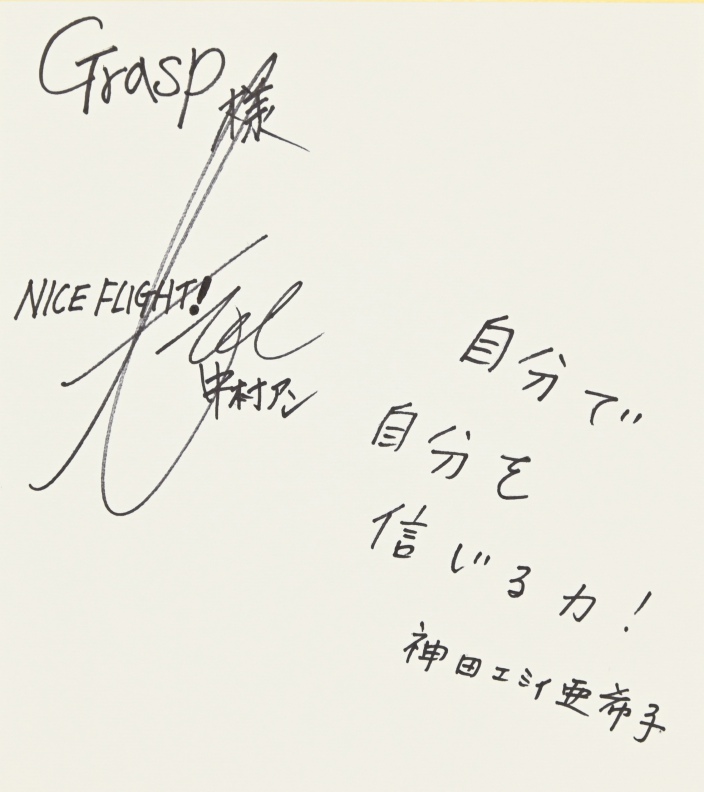 Grasp 様
NICE FLIGHT!
中村アン
自分で
自分を
信じる力!
神田エミイ亜希子